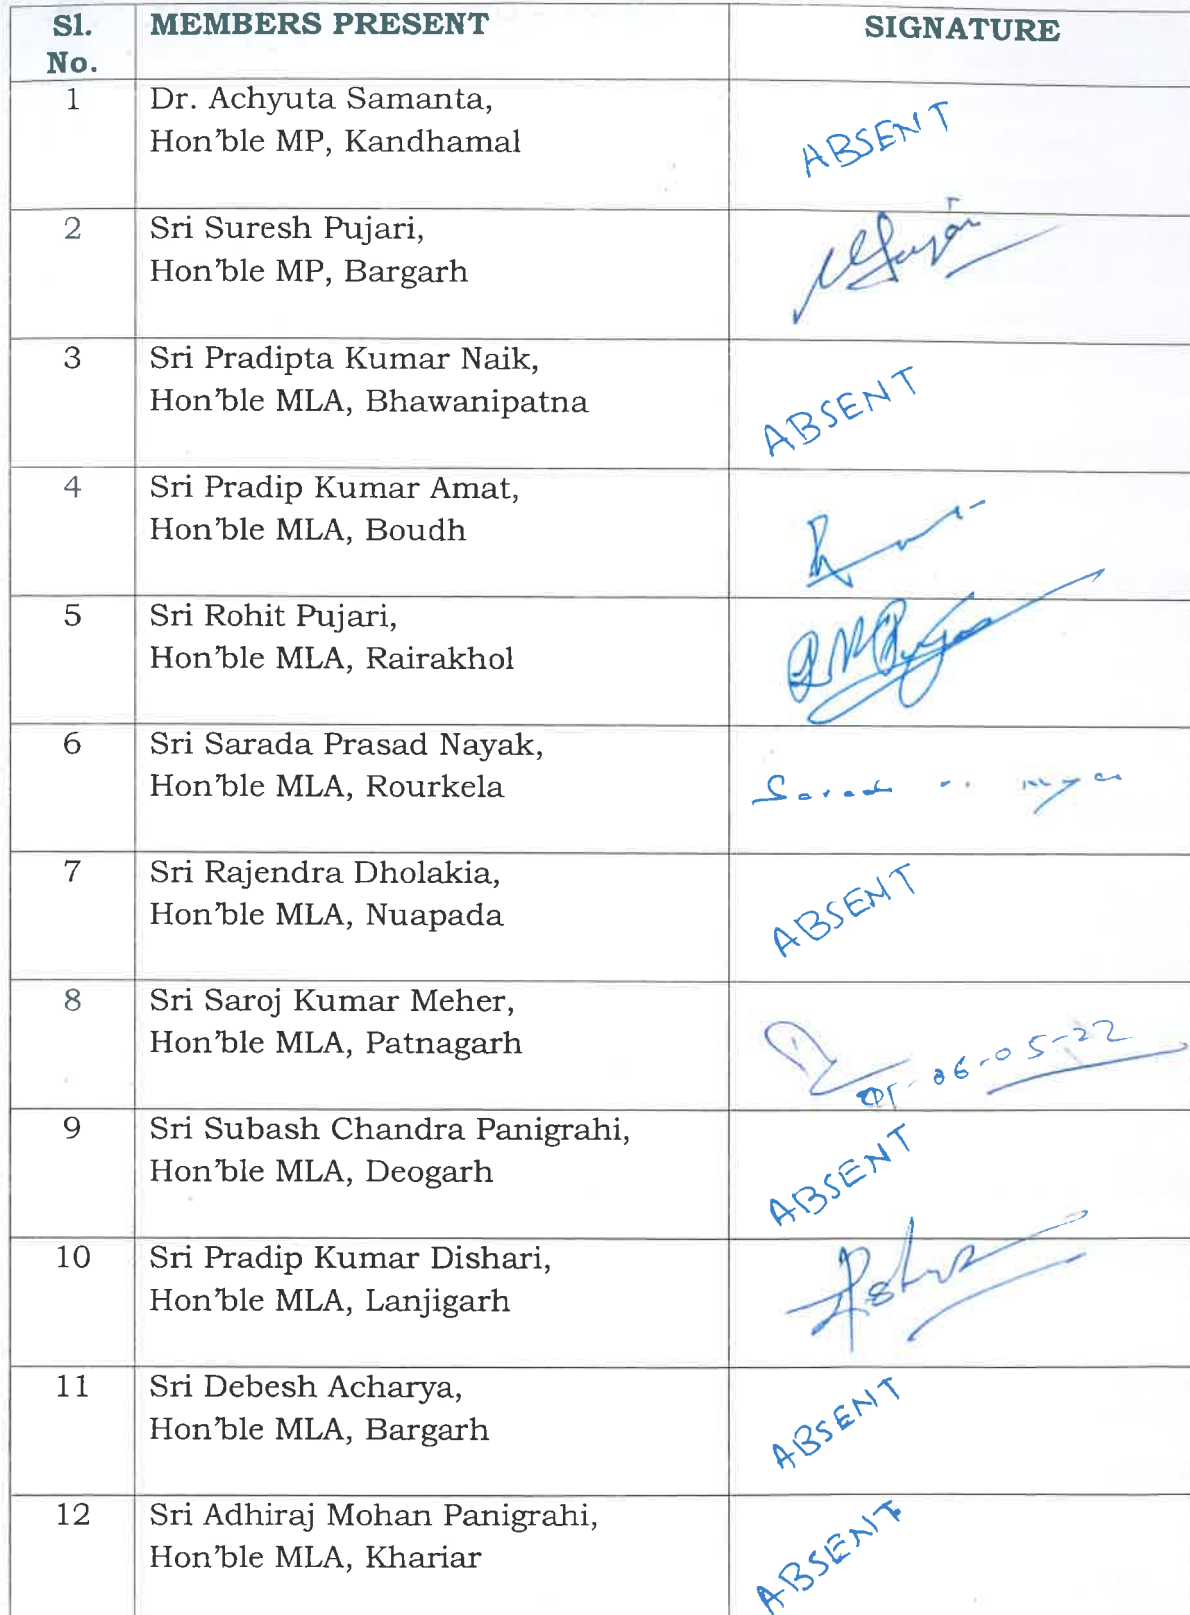 Sl. MEMBERS PRESENT SIGNATURE
No.
1 Dr. Achyuta Samanta,
Hon'ble MP, Kandhamal
ABSENT
2 Sri Suresh Pujari,
Hon'ble MP, Bargarh
3 Sri Pradipta Kumar Naik,
Hon'ble MLA, Bhawanipatna
ABSENT
4 Sri Pradip Kumar Amat,
Hon'ble MLA, Boudh
5 Sri Rohit Pujari,
Hon'ble MLA, Rairakhol
6 Sri Sarada Prasad Nayak,
Hon'ble MLA, Rourkela
7 Sri Rajendra Dholakia,
Hon'ble MLA, Nuapada
ABSENT
8 Sri Saroj Kumar Meher,
Hon'ble MLA, Patnagarh
06-05-22
9 Sri Subash Chandra Panigrahi,
Hon'ble MLA, Deogarh
ABSENT
10 Sri Pradip Kumar Dishari,
Hon'ble MLA, Lanjigarh
11 Sri Debesh Acharya,
Hon'ble MLA, Bargarh
ABSENT
12 Sri Adhiraj Mohan Panigrahi,
Hon'ble MLA, Khariar
ABSENT